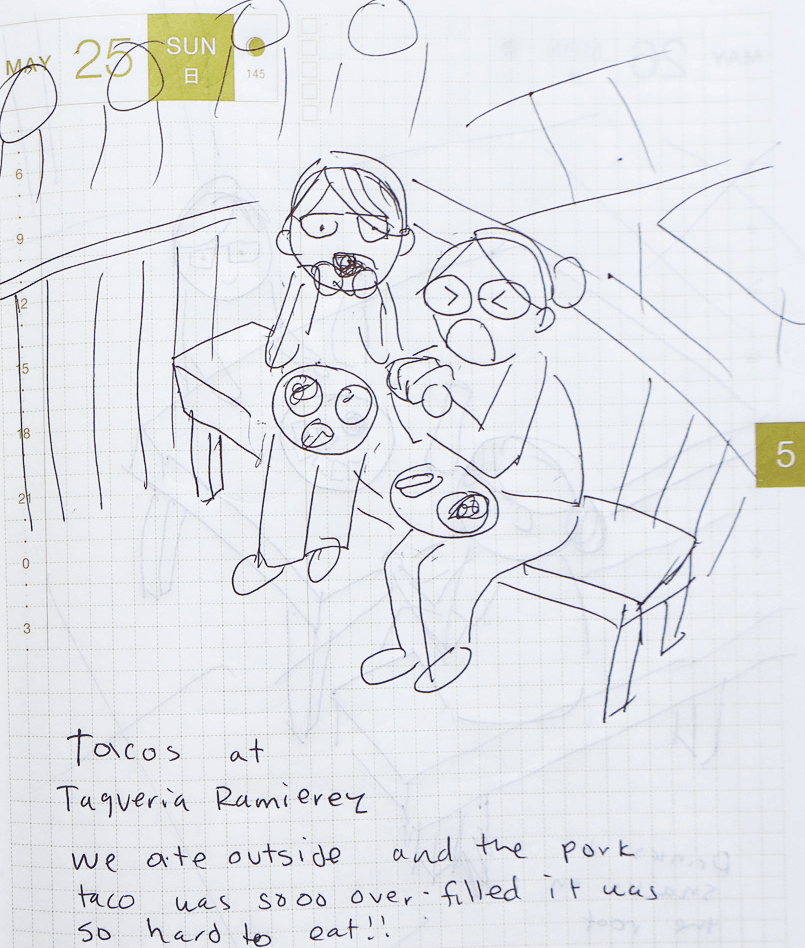 MAY 25 SUN
日
145
6
9
12
15
18
21
0
3
5
Tacos at
Taqueria Ramierez
we ate outside and the pork
taco was sooo over-filled it was
so hard to eat!!